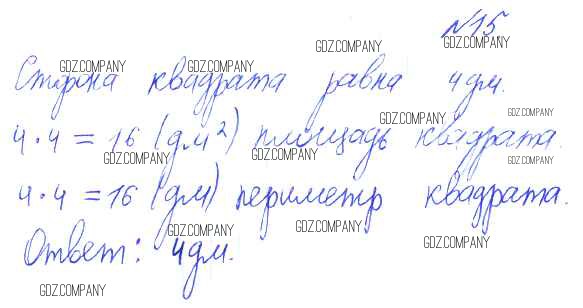 №15
Сторона квадрата равна 4дм.
4·4=16 (дм²) площадь квадрата.
4·4=16 (дм) периметр квадрата.
Ответ: 4дм.
GDZ.COMPANY
GDZ.COMPANY
GDZ.COMPANY
GDZ.COMPANY
GDZ.COMPANY
GDZ.COMPANY
GDZ.COMPANY
GDZ.COMPANY
GDZ.COMPANY
GDZ.COMPANY
GDZ.COMPANY
GDZ.COMPANY
GDZ.COMPANY